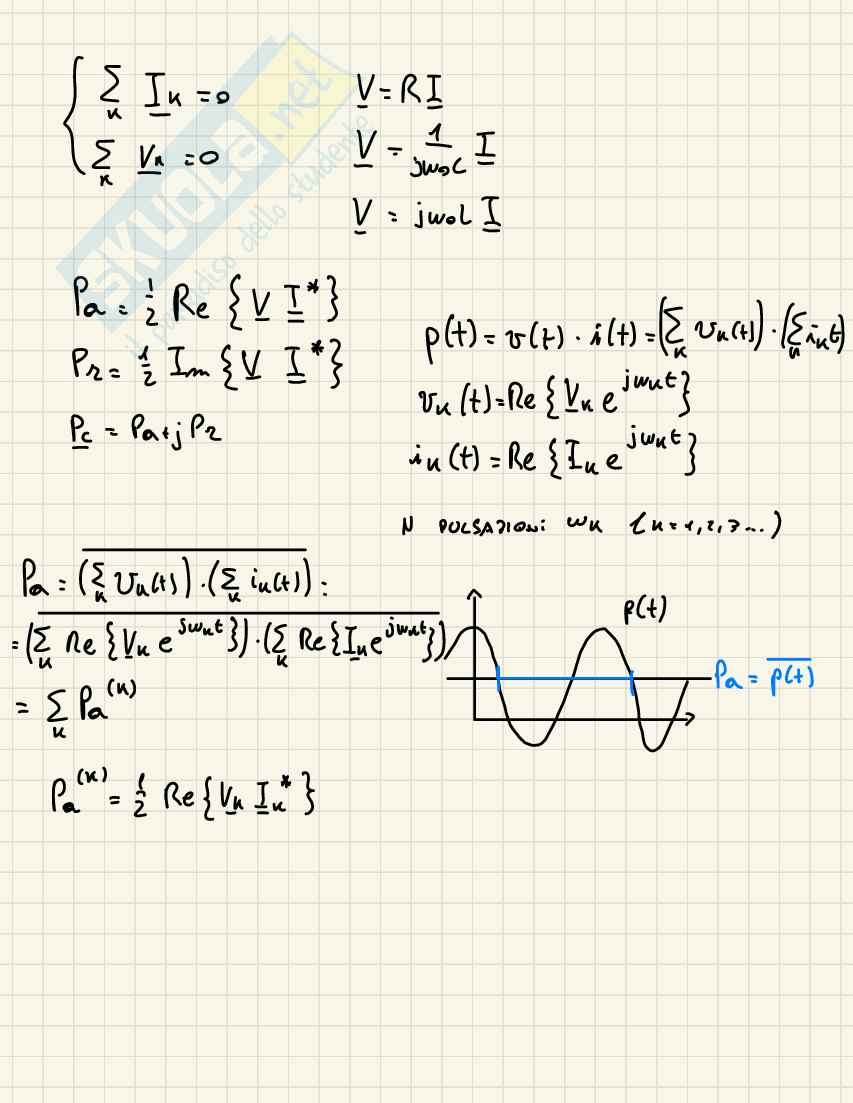 ∑_k I̲_k = 0
∑_k V̲_k = 0
V̲ = R I̲
V̲ = 1/(jω₀C) I̲
V̲ = jω₀L I̲
SKUOLA.net
il paradiso dello studente
Pₐ = 1/2 Re { V̲ I̲* }
Pᵣ = 1/2 Im { V̲ I̲* }
P̲c = Pa + j Pr
p(t) = v(t) · i(t) = (∑_k v_k(t)) · (∑_k i_k t)
v_k (t) = Re { V̲_k e^{jω_k t} }
i_k (t) = Re { I̲_k e^{jω_k t} }
N PULSAZIONI ω_k (k = 1, 2, 3 ...)
Pa = \overline{(∑_k v_k(t)) · (∑_k i_k(t))} =
= \overline{(∑_k Re { V̲_k e^{jω_k t} }) · (∑_k Re { I̲_k e^{jω_k t} })}
= ∑_k Pa^{(k)}
Pa^{(k)} = 1/2 Re { V̲_k I̲_k* }
p(t)
Pa = \overline{p(t)}